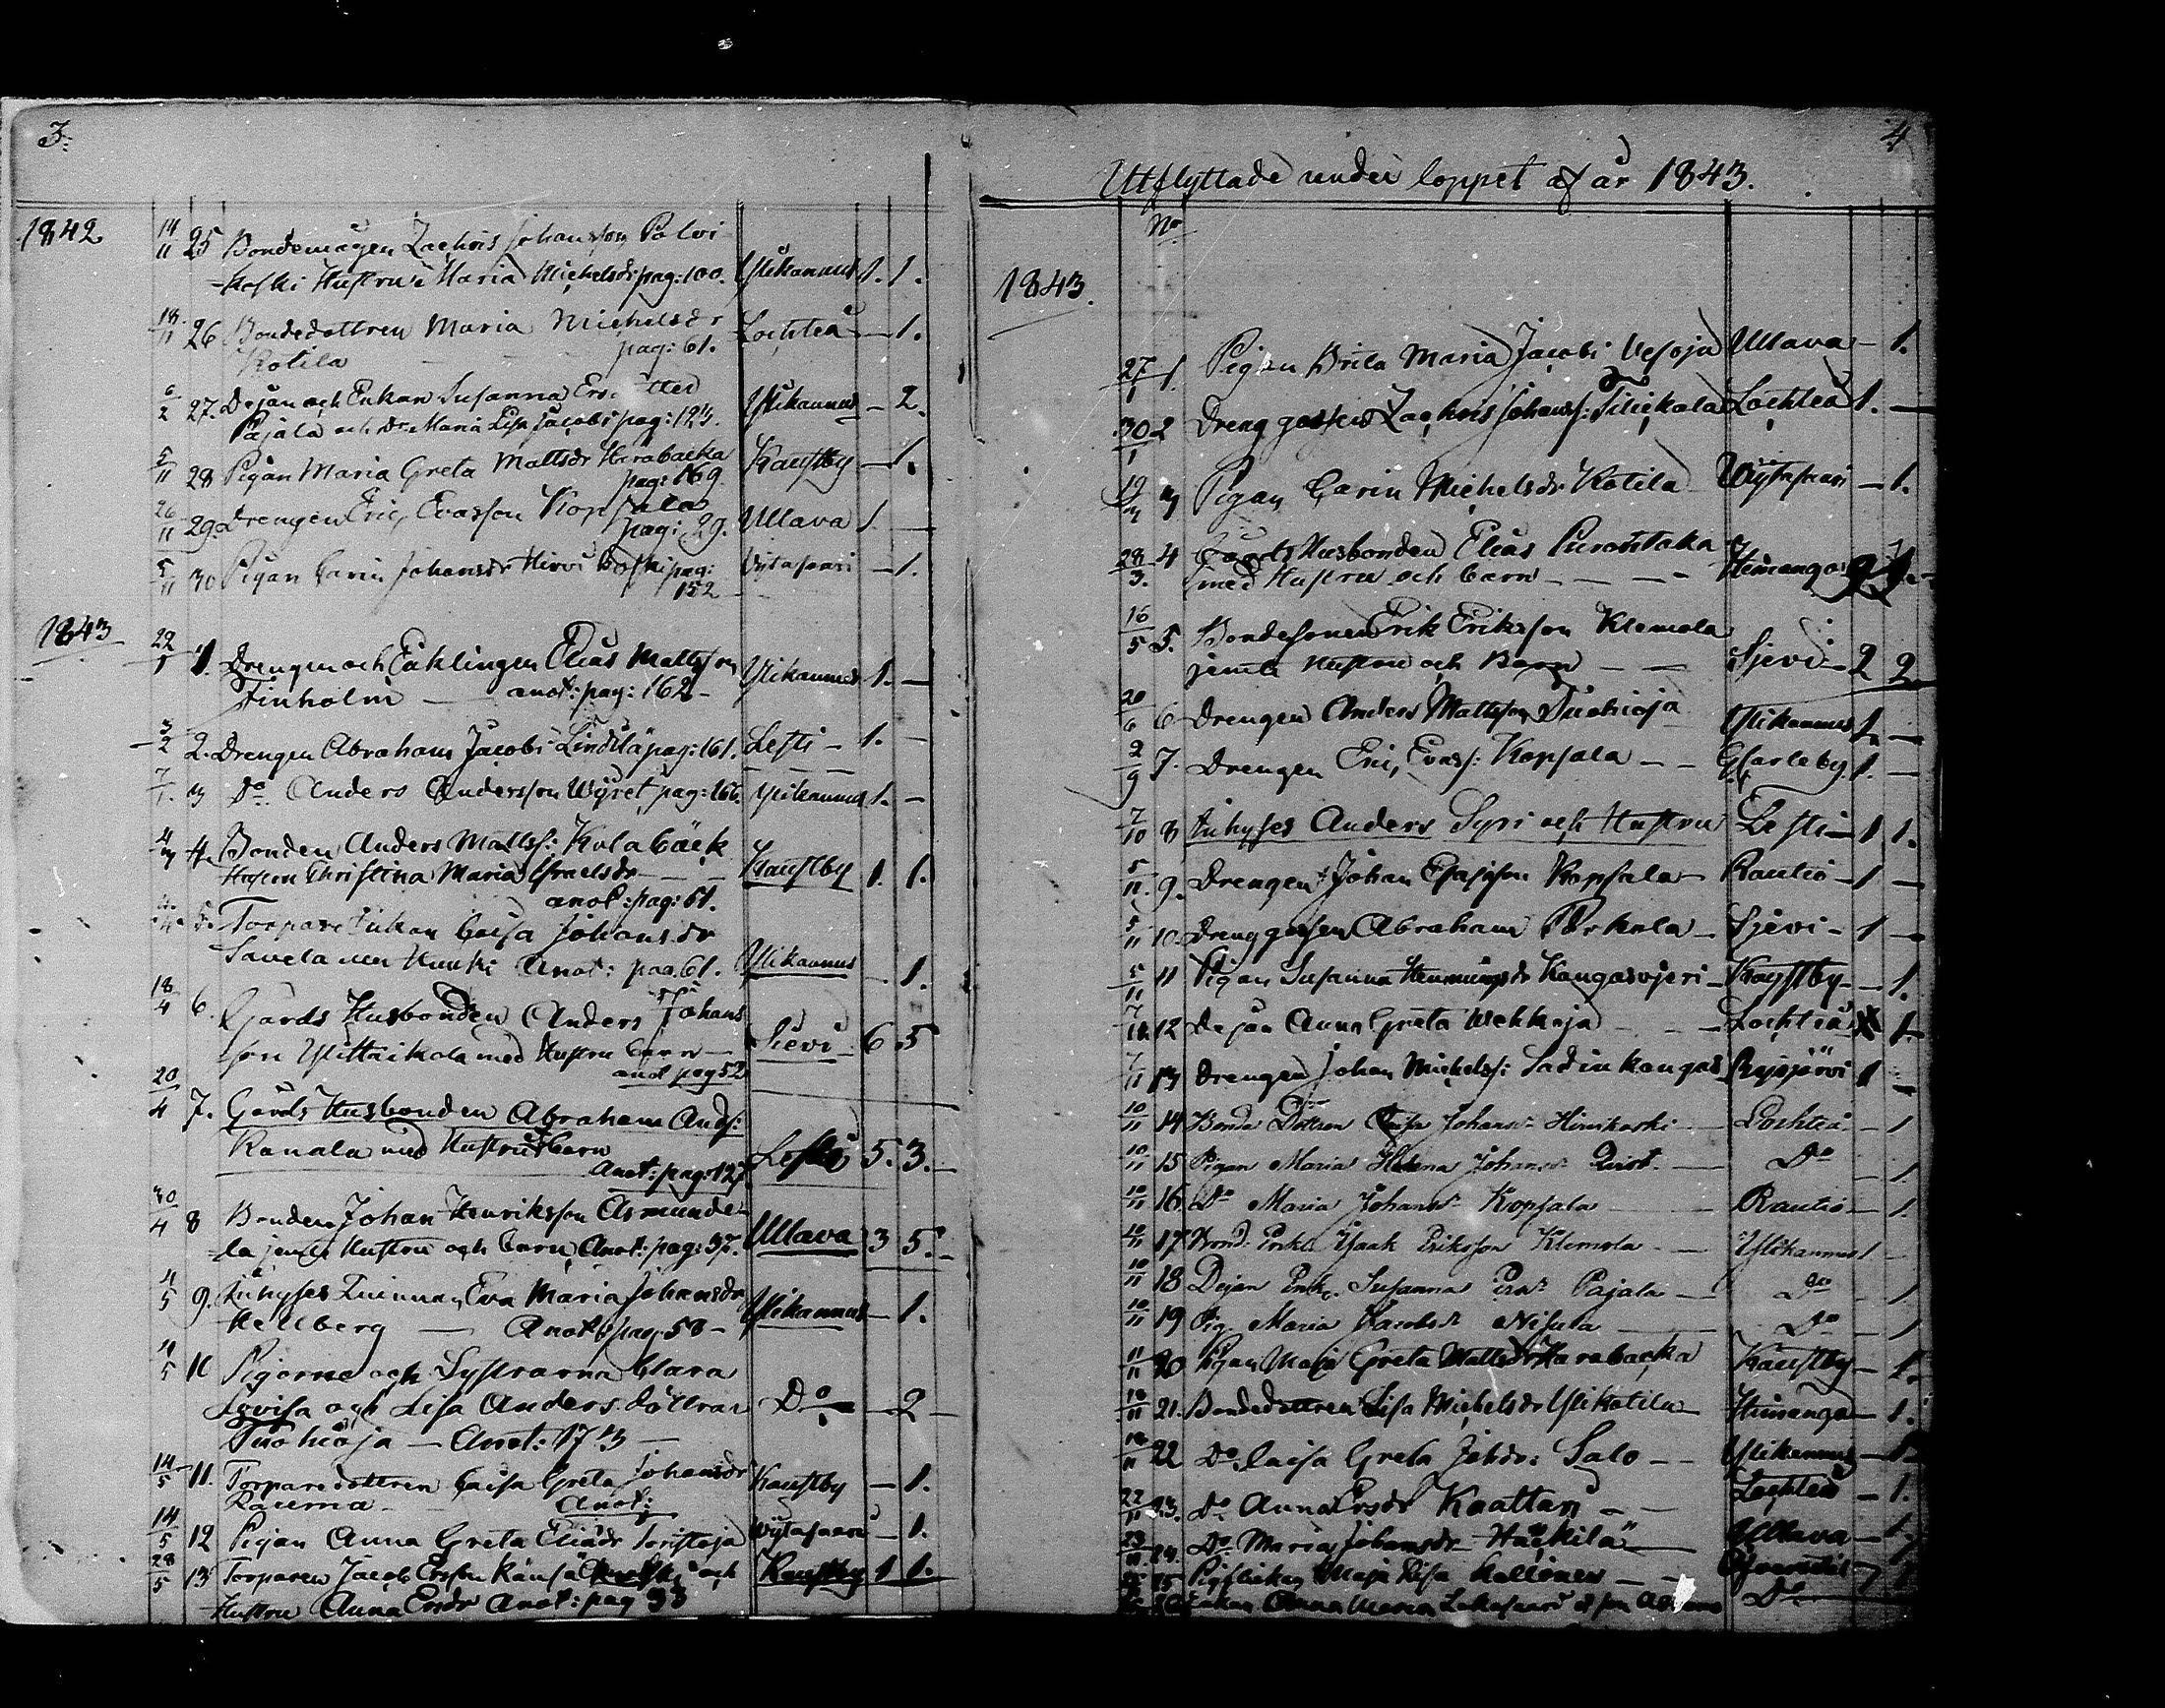 3.
1842
14/11 25 Bondemågen Zachris Johansson Palvi-
koski Hustru Maria Michelsdr pag: 100. Ylikannus 1. 1.
18/11 26 Bondedottren Maria Michelsdr Lochteå — 1.
Kotila pag: 61.
6/2 27. Dejan och Enkan Susanna Ers Ylikannus — 2.
Pajala och Dr Maria Lisa Jacobs pag: 124.
5/11 28 Pigan Maria Greta Mattsdr Harabacka Kaustby — 1.
pag: 169.
26/11 29. Drengen Eric Evasson Kopsala Ullava 1. —
pag: 29.
5/11 30 Pigan Carin Johansdr Hirvi Koski pag: — 1.
152
1843
22/1 1. Drengen och Enklingen Elias Mattsson Ylikannus 1. —
Finholm — anot: pag: 162 —
3/2 2. Drengen Abraham Jacobs Lindilä pag: 161. Lesti — 1. —
7/1. 3 Do Anders Andersson pag: 166. Ylikannus 1. —
4/3 4. Bonden Anders Matts: Kolabäck Kaustby 1. 1.
Hustru Christina Maria Israelsdr
anot: pag: 61.
5. Torpare Enkan Caisa Johansdr
Savela anot: pag. 61. Ylikannus — 1.
18/4 6. Gårds Husbonden Anders Johans
son med Hustru barn — Sievi 6 5
anot pag 52
20/4 7. Gårds Husbonden Abraham Ands:
Ranala med Hustru & barn Lesti 5. 3.
Anot: pag: 127
30/4 8 Bonden Johan Henriksson Asmunde-
la jemte Hustru och barn, Anot: pag: 37. Ullava 3 5.
4/5 9. Inhyses Qvinnan Eva Maria Johansdr Ylikannus — 1.
Hellberg — Anot: pag: 58 —
4/5 10 Pigorne och Systrarna Clara
Lovisa och Lisa Anders döttrar Do — 2 —
Tuohioja — Anot: 173 —
14/5 11. Torparedottren Caisa Greta Johansdr Kaustby — 1.
Rauma — Anot:
14/5 12 Pigan Anna Greta Eliædr — 1.
28/5 13 Torparen Jacob Ersson och Kaustby 1 1.
Hustru Anna Ersdr Anot: pag 93
4
Utflyttade under loppet af år 1843.
No
1843.
27/1 1. Pigan Brita Maria Jacobs Vesoja Ullava — 1.
30/1 2 Zachris Johanss: Lochteå 1. —
19/3 3 Pigan Carin Michelsdr Kotila — 1.
28/3. 4 Gårds Husbonden Elias
med Hustru och barn Himango
16/5 5. Bondesonen Erik Eriksson Klemola
jemte Hustru och Barn — — Sjevi — 2 2
20/6 6 Drengen Anders Mattsson Tuohioja Ylikannus 1. —
2/9 7. Drengen Eric Evass: Kopsala — — GCarleby 1. —
7/10 8 Inhyses Anders Syri och Hustru Lesti — 1 1.
5/11. 9. Drengen Johan Esaisson Kopsala — Rautio — 1 —
5/11 10. Drenggossen Abraham Sjevi — 1 —
5/11 11 Pigan Susanna Hemmingsdr Kangasvieri — Kaustby — — 1.
12 Dejan Anna Greta Wehkaja — — Lochteå 1.
7/11 13 Drengen Johan Michelss: Sadinkangas Reisjärvi 1 —
10/11 14 Bonde Dottren Caisa Johansdr Hirvikoski — Lochteå — 1
10/11 15 Pigan Maria Helena Johansdr Qvist. — Do — 1
10/11 16 Do Maria Johansdr Kopsala — Rautio — 1.
10/11 17 Isaak Eriksson Klemola — Ylikannus 1 —
10/11 18 Dejan Enk. Susanna Ersdr Pajala — Do — 1
10/11 19 Pig. Maria Jacobsdr Nisula — Do — 1
11/11 20 Pigan Maja Greta Mattsdr Harabacka Kaustby — 1.
21. Bondedottren Lisa Michelsdr Ylikotila — Himanga — 1.
22 Do Caisa Greta Johdr: Salo — — Ylikannus — 1.
22/11 23. Do Anna Ersdr Kaattari — — Lochteå — 1.
23/11 24. Do Maria Johansdr Häckilä — Ullava — 1.
25 Pigflickan Maja Lisa Kallonen — —
Enkan Anna Maria Do